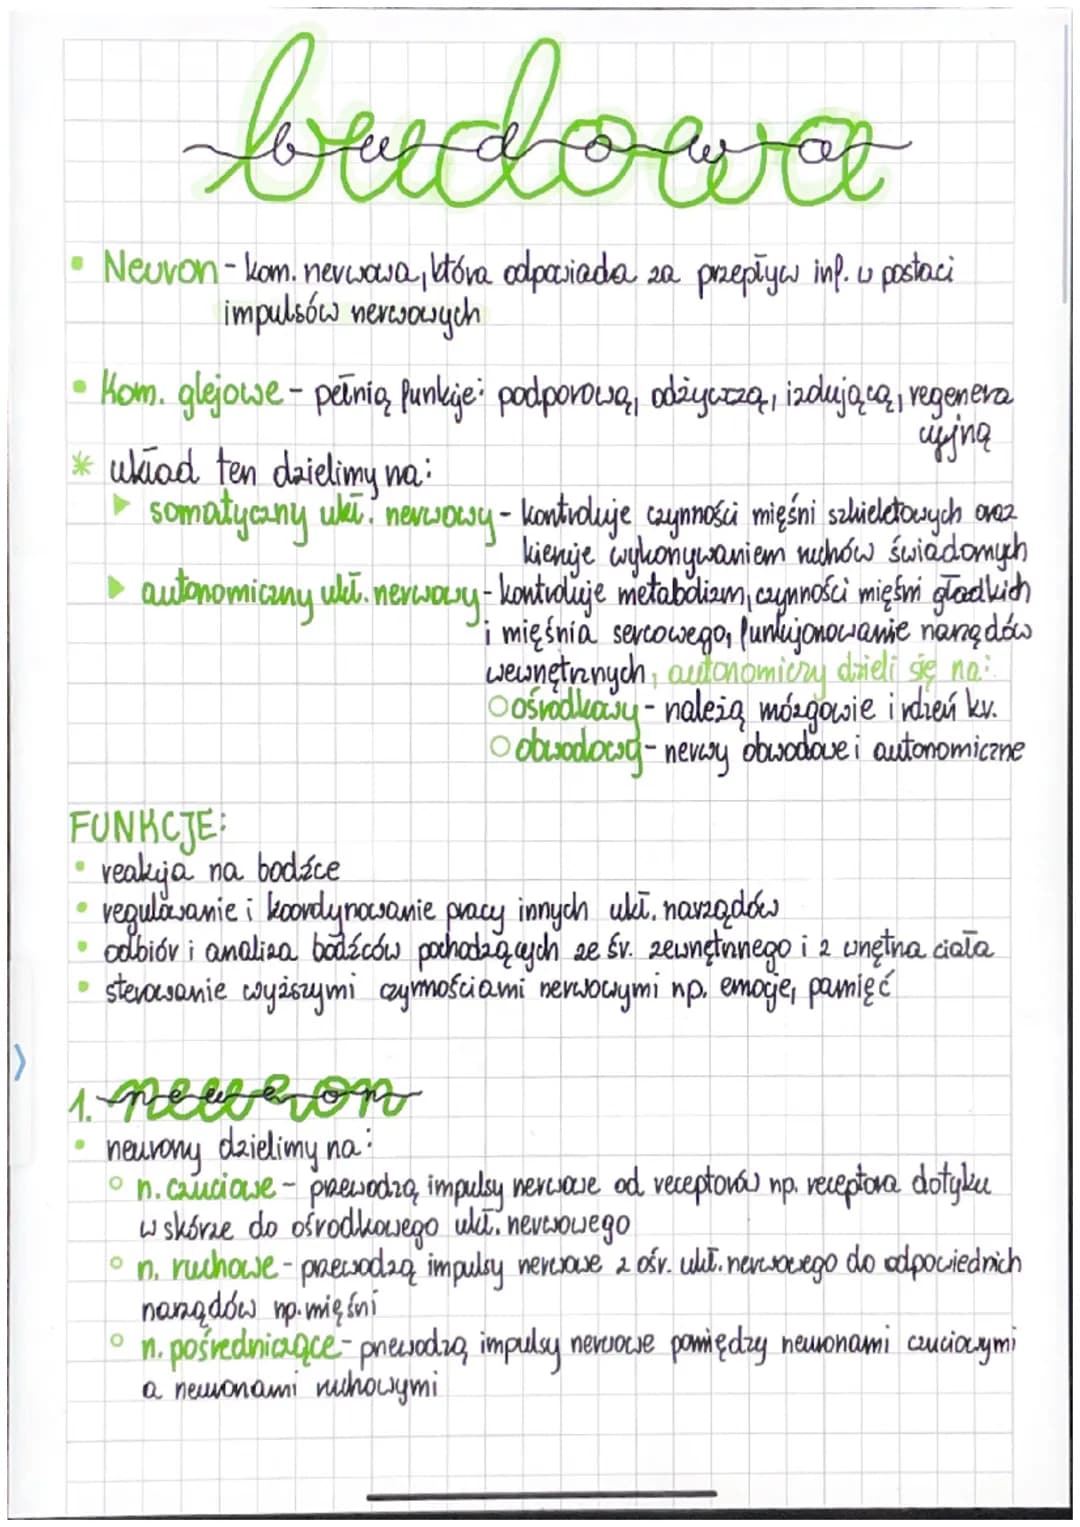 budowa
• Neuron - kom. nerwowa, która odpowiada za przepływ inf. w postaci
impulsów nerwowych
• Kom. glejowe - pełnią funkcje: podporową, odżywczą, izolującą, regenera
cyjną
* układ ten dzielimy na:
▶ somatyczny ukł. nerwowy - kontroluje czynności mięśni szkieletowych oraz
kieruje wykonywaniem ruchów świadomych
▶ autonomiczny ukł. nerwowy - kontroluje metabolizm, czynności mięśni gładkich
i mięśnia sercowego, funkcjonowanie narządów
wewnętrznych, autonomiczy dzieli się na:
○ ośrodkowy - należą mózgowie i rdzeń kr.
○ obwodowy - nerwy obwodowe i autonomiczne
FUNKCJE:
• reakcja na bodźce
• regulowanie i koordynowanie pracy innych ukł. narządów
• odbiór i analiza bodźców pochodzących ze śr. zewnętrznego i z wnętrza ciała
• sterowanie wyższymi czynnościami nerwowymi np. emocje, pamięć
1. neuron
• neurony dzielimy na:
○ n. czuciowe - przewodzą impulsy nerwowe od receptorów np. receptora dotyku
w skórze do ośrodkowego ukł. nerwowego
○ n. ruchowe - przewodzą impulsy nerwowe z ośr. ukł. nerwowego do odpowiednich
narządów np. mięśni
○ n. pośredniczące - przewodzą impulsy nerwowe pomiędzy neuronami czuciowymi
a neuronami ruchowymi